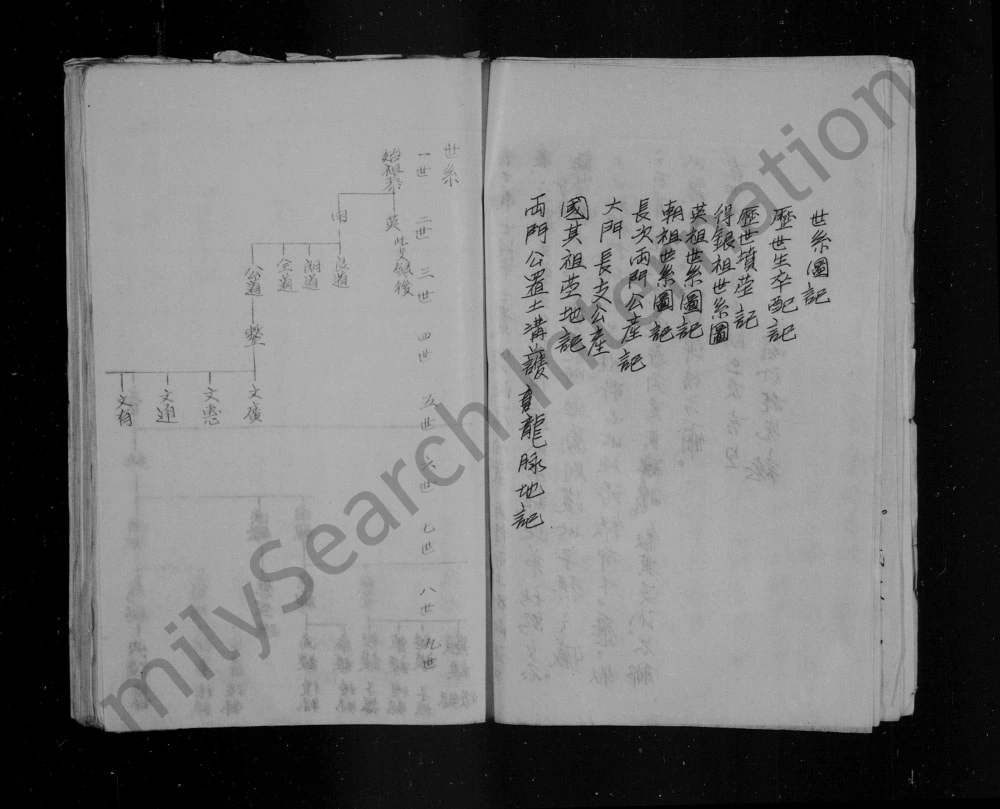 世系圖記
歷世生卒配記
歷世墳塋記
得銀祖世系圖
英祖世系圖記
朝祖世系圖記
長次兩門公產記
大門長支公產
國其祖塋地記
兩門公置土溝護 龍脉地記
世系
一世 二世 三世 四世 五世 六世 七世 八世 九世
始祖泰
英
公道
整
文廣
文惠
文通
文有
milySearch Internation